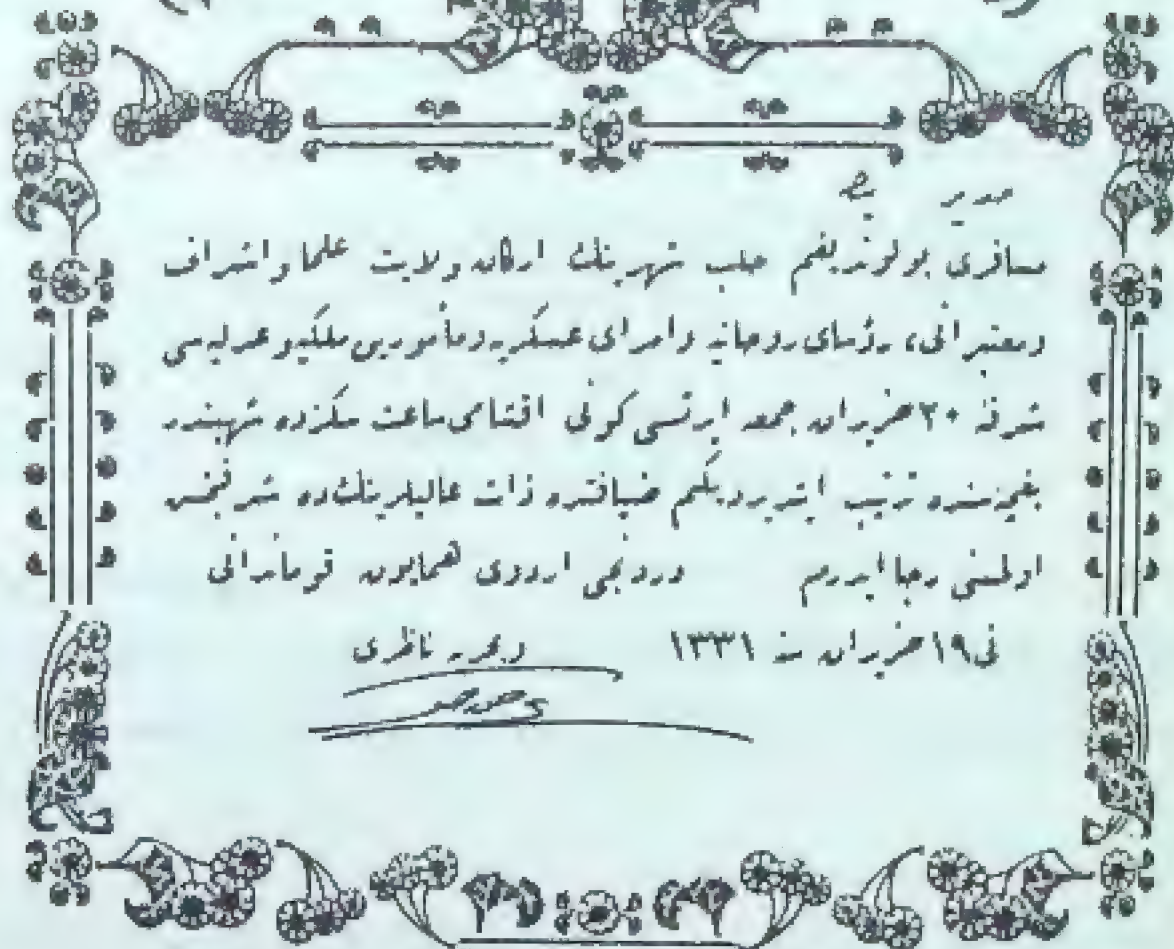 مسافری بولوندیغم حلب شهرینك اركان ولایت علما واشراف
ومعتبرانی، رؤسای روحانیه وامرای عسكریه ومأمورین ملكیه وعدلیه‌سی
شرفنه ٢٠ حزیران جمعه ایرتسی كونی اقشامی ساعت سكزده شهبندر
بغچه‌سنده ترتیب ایتدیردیكم ضیافتده ذات عالیلرینك ده
اولمسنی رجا ایدرم دردنجی اردوی همایون قوماندانی
فی ١٩ حزیران سنه ١٣٣١ وبحریه ناظری